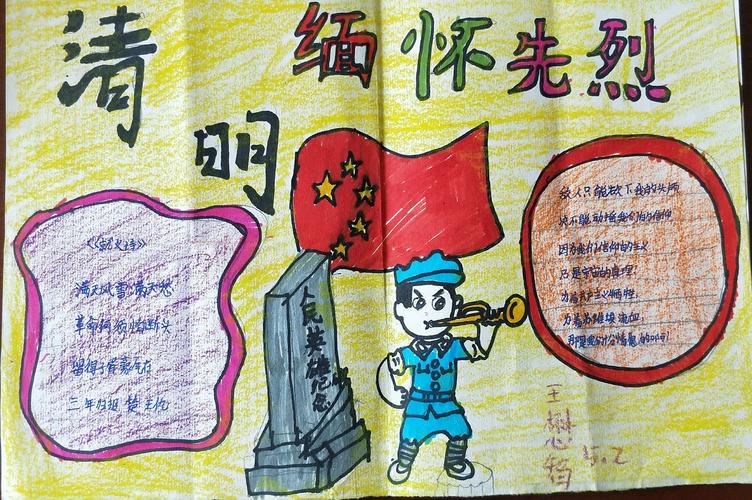 清明
缅怀先烈
《就义诗》
满天风雪满天愁
革命何须怕断头
留得子胥豪气在
三年归报楚王仇
人民英雄纪念
敌人只能砍下我的头颅
决不能动摇我们的信仰
因为我们信仰的主义
乃是宇宙的真理
为着共产主义牺牲
为着苏维埃流血
那是我们十分情愿的啊
王
5.2